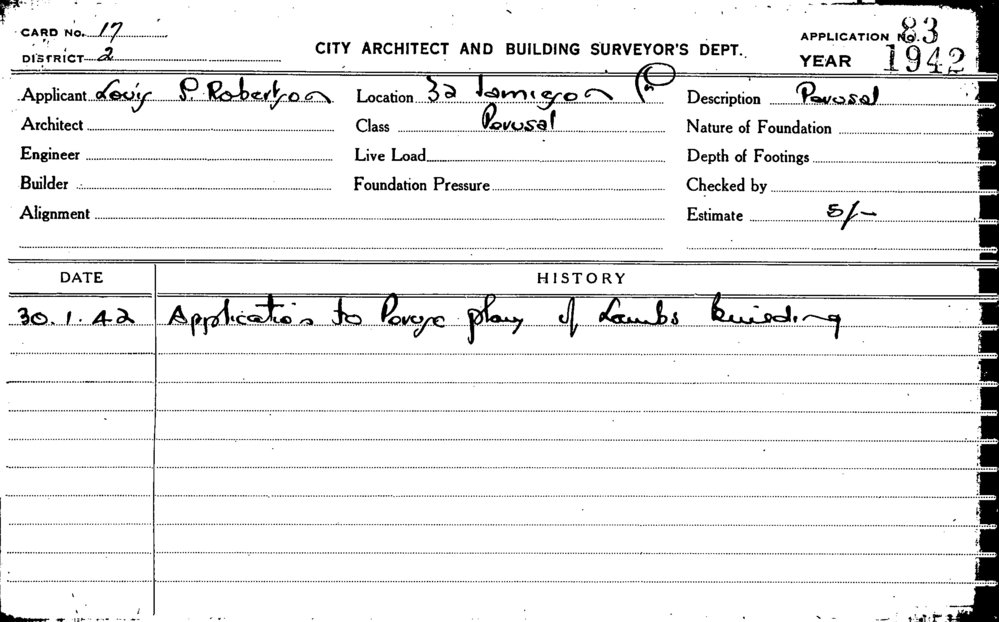 CARD No. 17
DISTRICT 2
CITY ARCHITECT AND BUILDING SURVEYOR'S DEPT.
APPLICATION No. 83
YEAR 1942
Applicant Louis P. Robertson Location 32 Jamieson Description Perusal
Architect Class Perusal Nature of Foundation
Engineer Live Load Depth of Footings
Builder Foundation Pressure Checked by
Alignment Estimate 5/-
DATE HISTORY
30.1.42 Application to Peruse plans of Lambs building